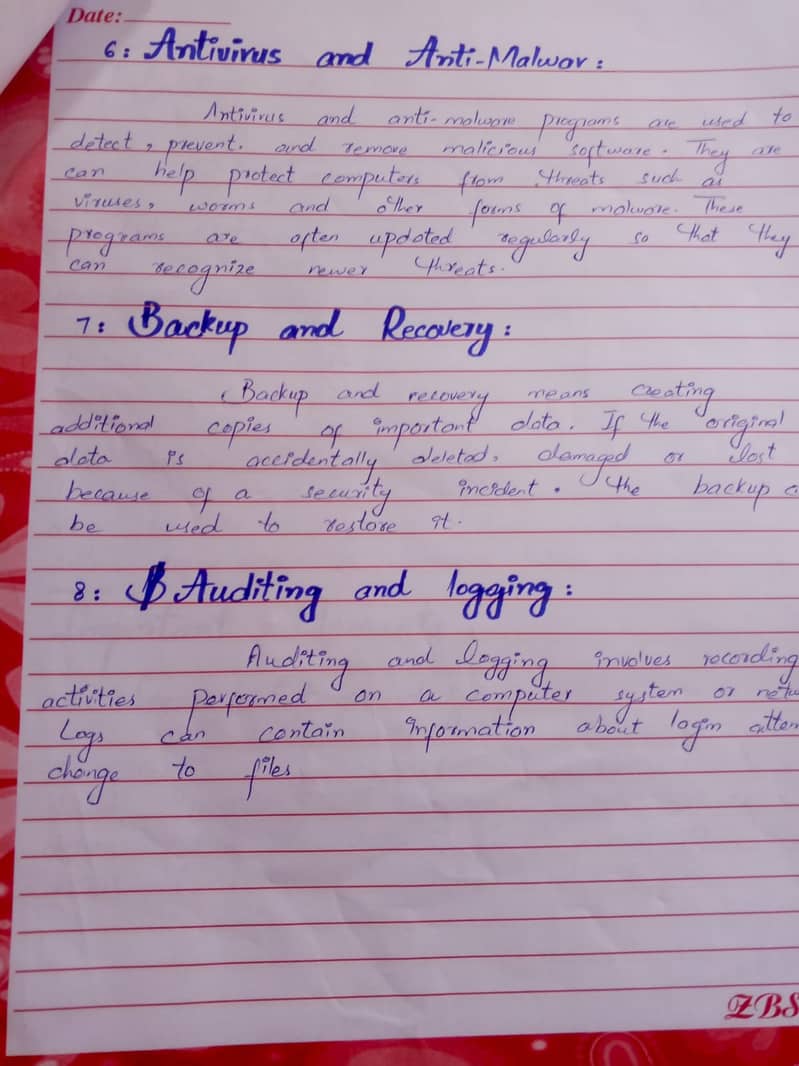 Date:
6: Antivirus and Anti-Malwar:
Antivirus and anti-malware programs are used to
detect, prevent. and remove malicious software. They are
can help protect computers from threats such as
viruses, worms and other forms of malware. These
programs are often updated regularly so that they
can recognize newer threats.
7: Backup and Recovery:
Backup and recovery means creating
additional copies of important data. If the original
data is accidentally deleted, damaged or lost
because of a security incident. the backup
be used to restore it.
8: Auditing and logging:
Auditing and logging involves recording
activities performed on a computer system or
Logs can contain information about login
change to files
ZBS